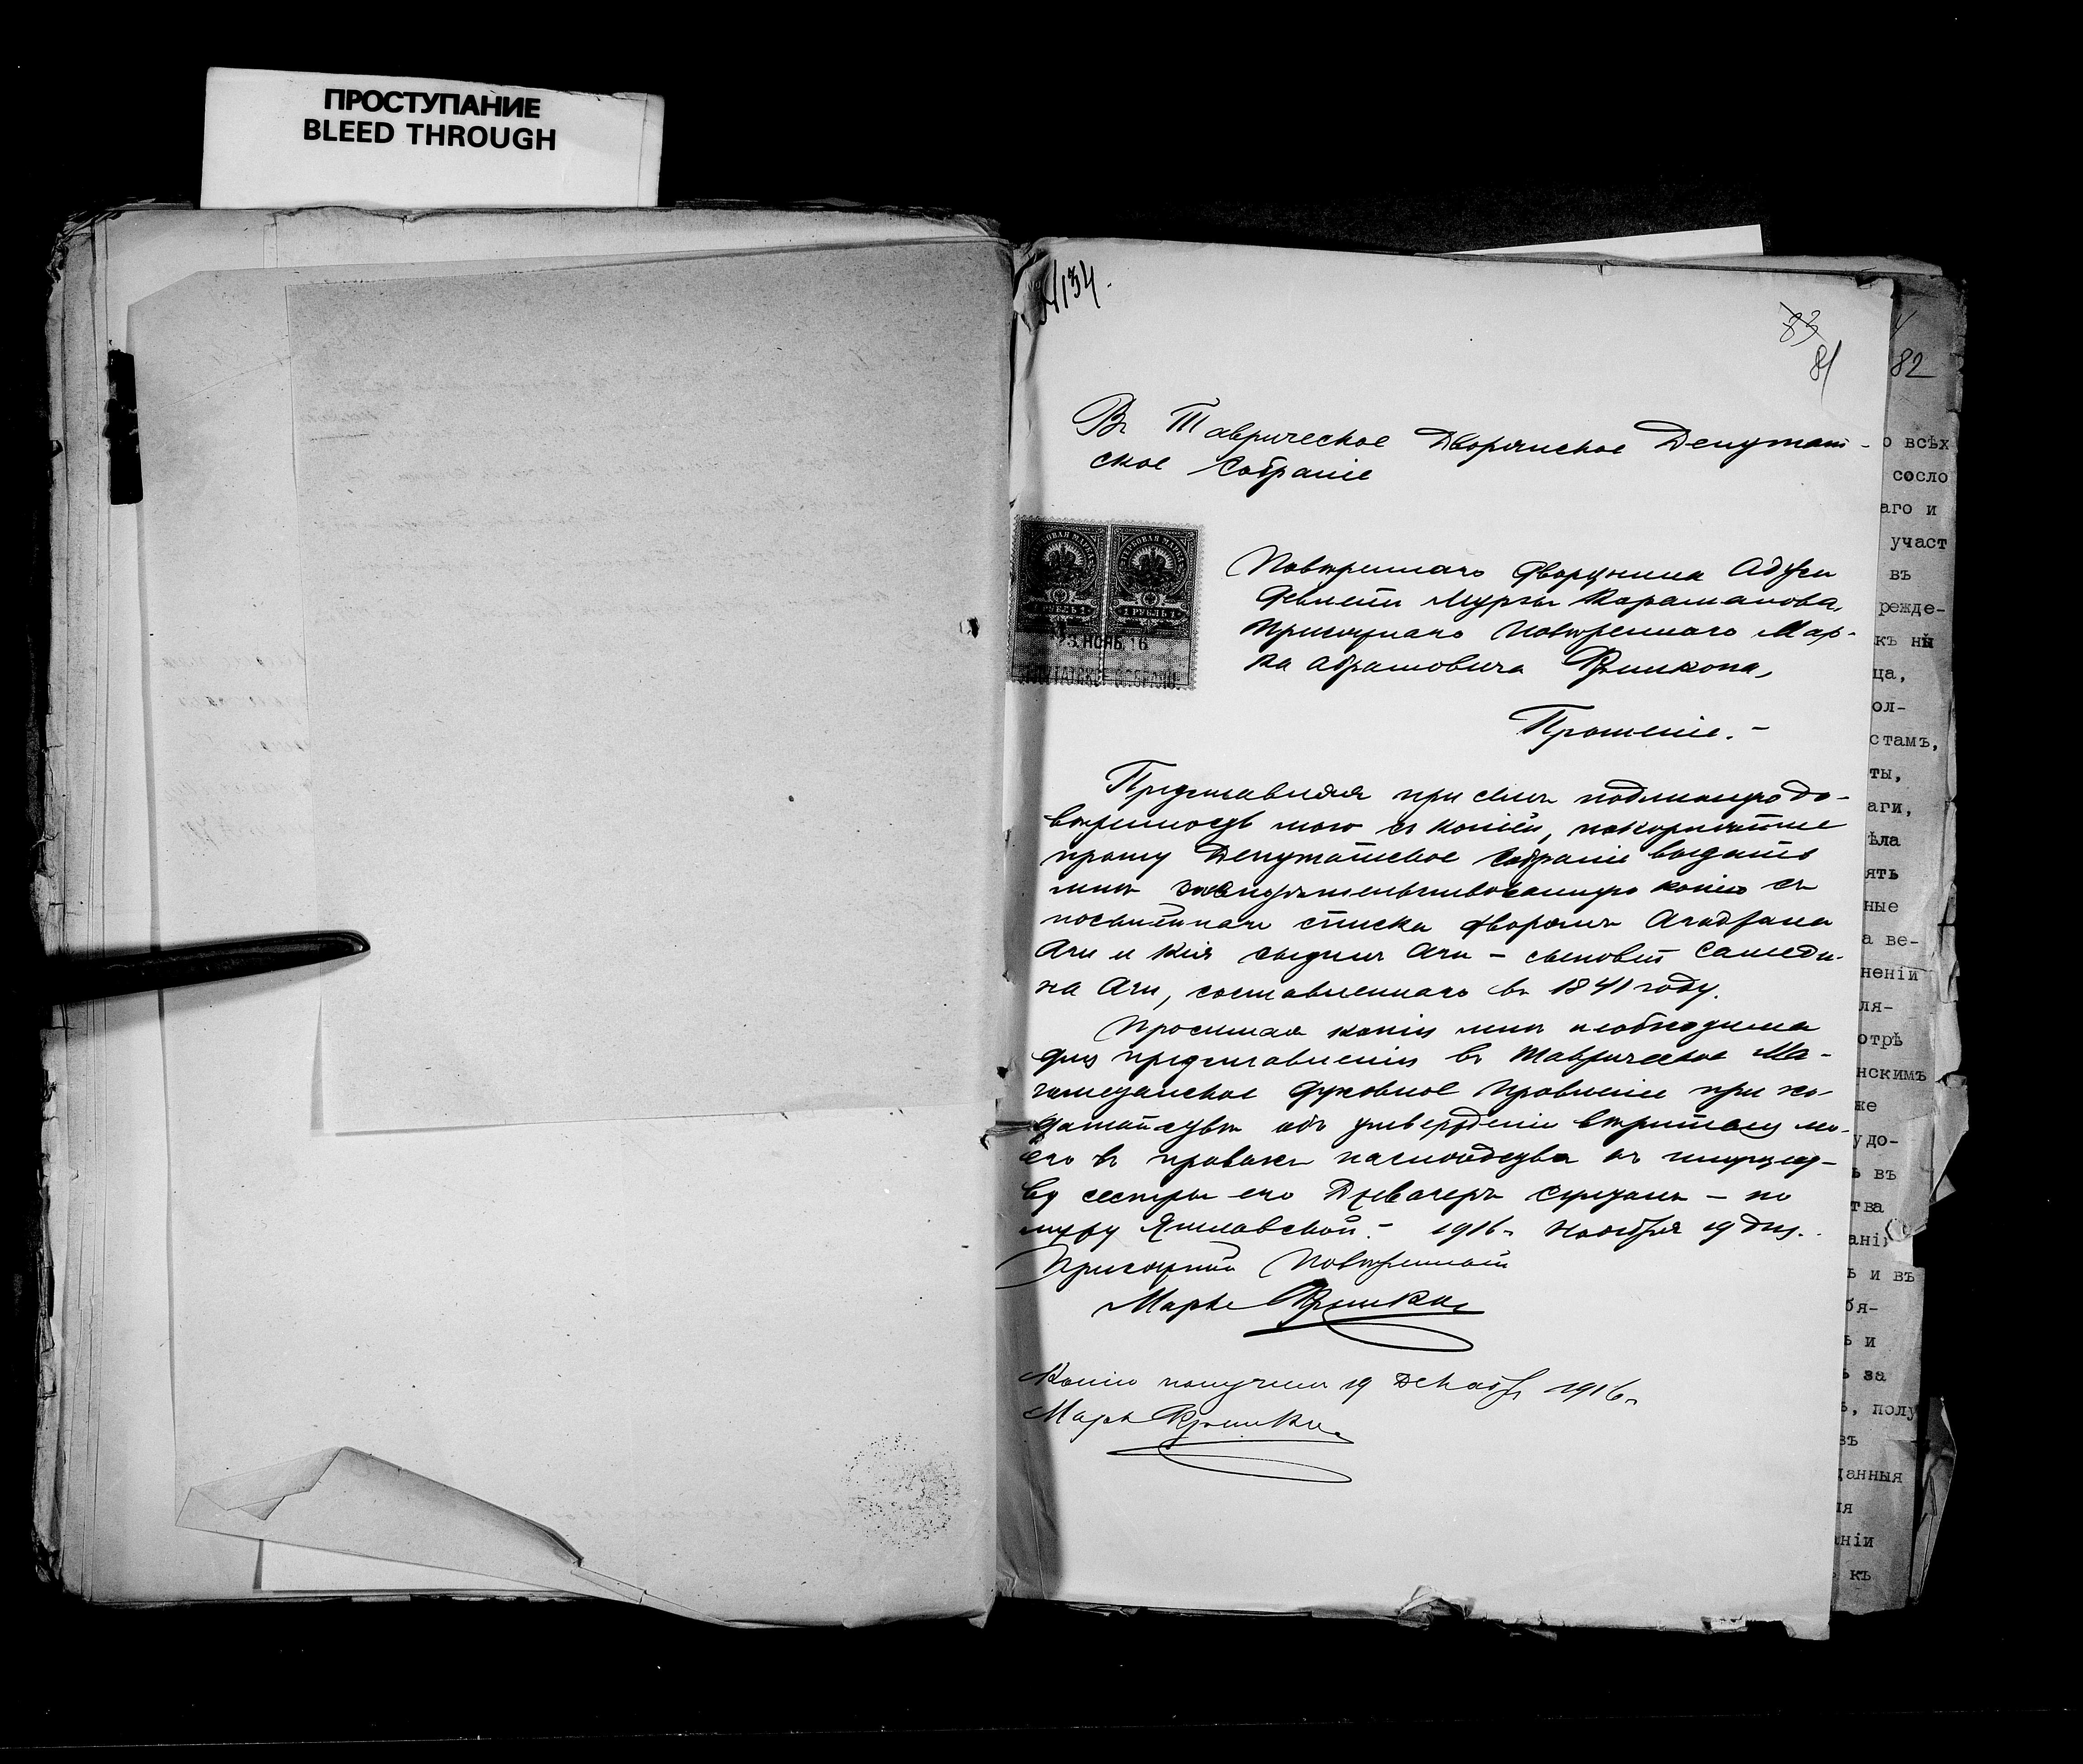 ПРОСТУПАНИЕ
BLEED THROUGH
134.
83
81
82
Въ Таврическое Дворянское Депутат-
ское Собраніе
ГЕРБОВАЯ МАРКА ГЕРБОВАЯ МАРКА
1 РУБЛЬ 1 1 РУБЛЬ 1
23. НОЯБ. 16
Повѣреннаго дворянина
Мурзы Караманова,
Присяжнаго Повѣреннаго Мар-
ка Абрамовича
Прошеніе.-
Представляя при семъ подлинную до-
вѣренность мою съ копіей, покорнѣйше
прошу Депутатское Собраніе выдать
мнѣ засвидѣтельствованную копію съ
посемейнаго списка дворянъ
Аги и Аги - сыновей Самеди-
на Аги, составленнаго въ 1841 году.
Просимая копія мнѣ необходима
для представленія въ Таврическое Ма-
гометанское Духовное Правленіе при хо-
датайствѣ объ утвержденіи вѣрителя мо-
его въ правахъ наслѣдства къ имущест-
ву сестры его - по
мужу Яшлавской.- 1916 г. Ноября 19 дня.
Присяжный Повѣренный
Маркъ
Копію получилъ 19 Декабр 1916 г.
Маркъ
о всѣх
сосло
аго и
участ
въ
режде-
къ
ца,
ол-
стамъ,
ты,
аги,
ѣла
ять
ные
а ве-
неніи
ля-
отрѣ
нскимъ
же
удо-
ь въ
тва
ані
ь и въ
бя-
ь и
ь за
ъ, полу
въ
данныя
ія
аніи
къ